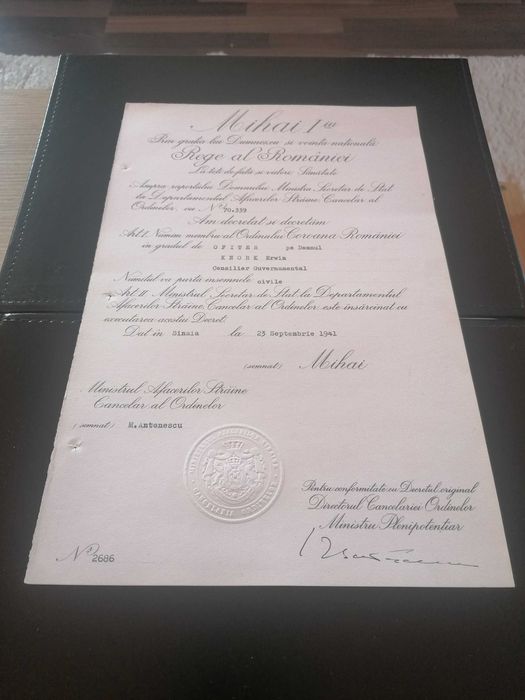 Mihai I iu
Prin grația lui Dumnezeu și voința națională
Rege al României
La toți de față și viitori Sănătate
Asupra raportului Domnului Ministru Secretar de Stat
la Departamentul Afacerilor Străine, Cancelar al
Ordinelor, cu No 70.339
Am decretat și decretăm
Art. I. Numim membru al Ordinului Coroana României
în gradul de OFITER pe Domnul
KNORK Erwin
Consilier Guvernamental
Numitul va purta însemnele civile
Art. II. Ministrul Secretar de Stat la Departamentul
Afacerilor Străine, Cancelar al Ordinelor este însărcinat cu
executarea acestui Decret.
Dat în Sinaia la 23 Septembrie 1941
(semnat) Mihai
Ministrul Afacerilor Străine
Cancelar al Ordinelor
(semnat) M.Antonescu
Pentru conformitate cu Decretul original
Directorul Cancelariei Ordinelor
Ministru Plenipotențiar
No 2686